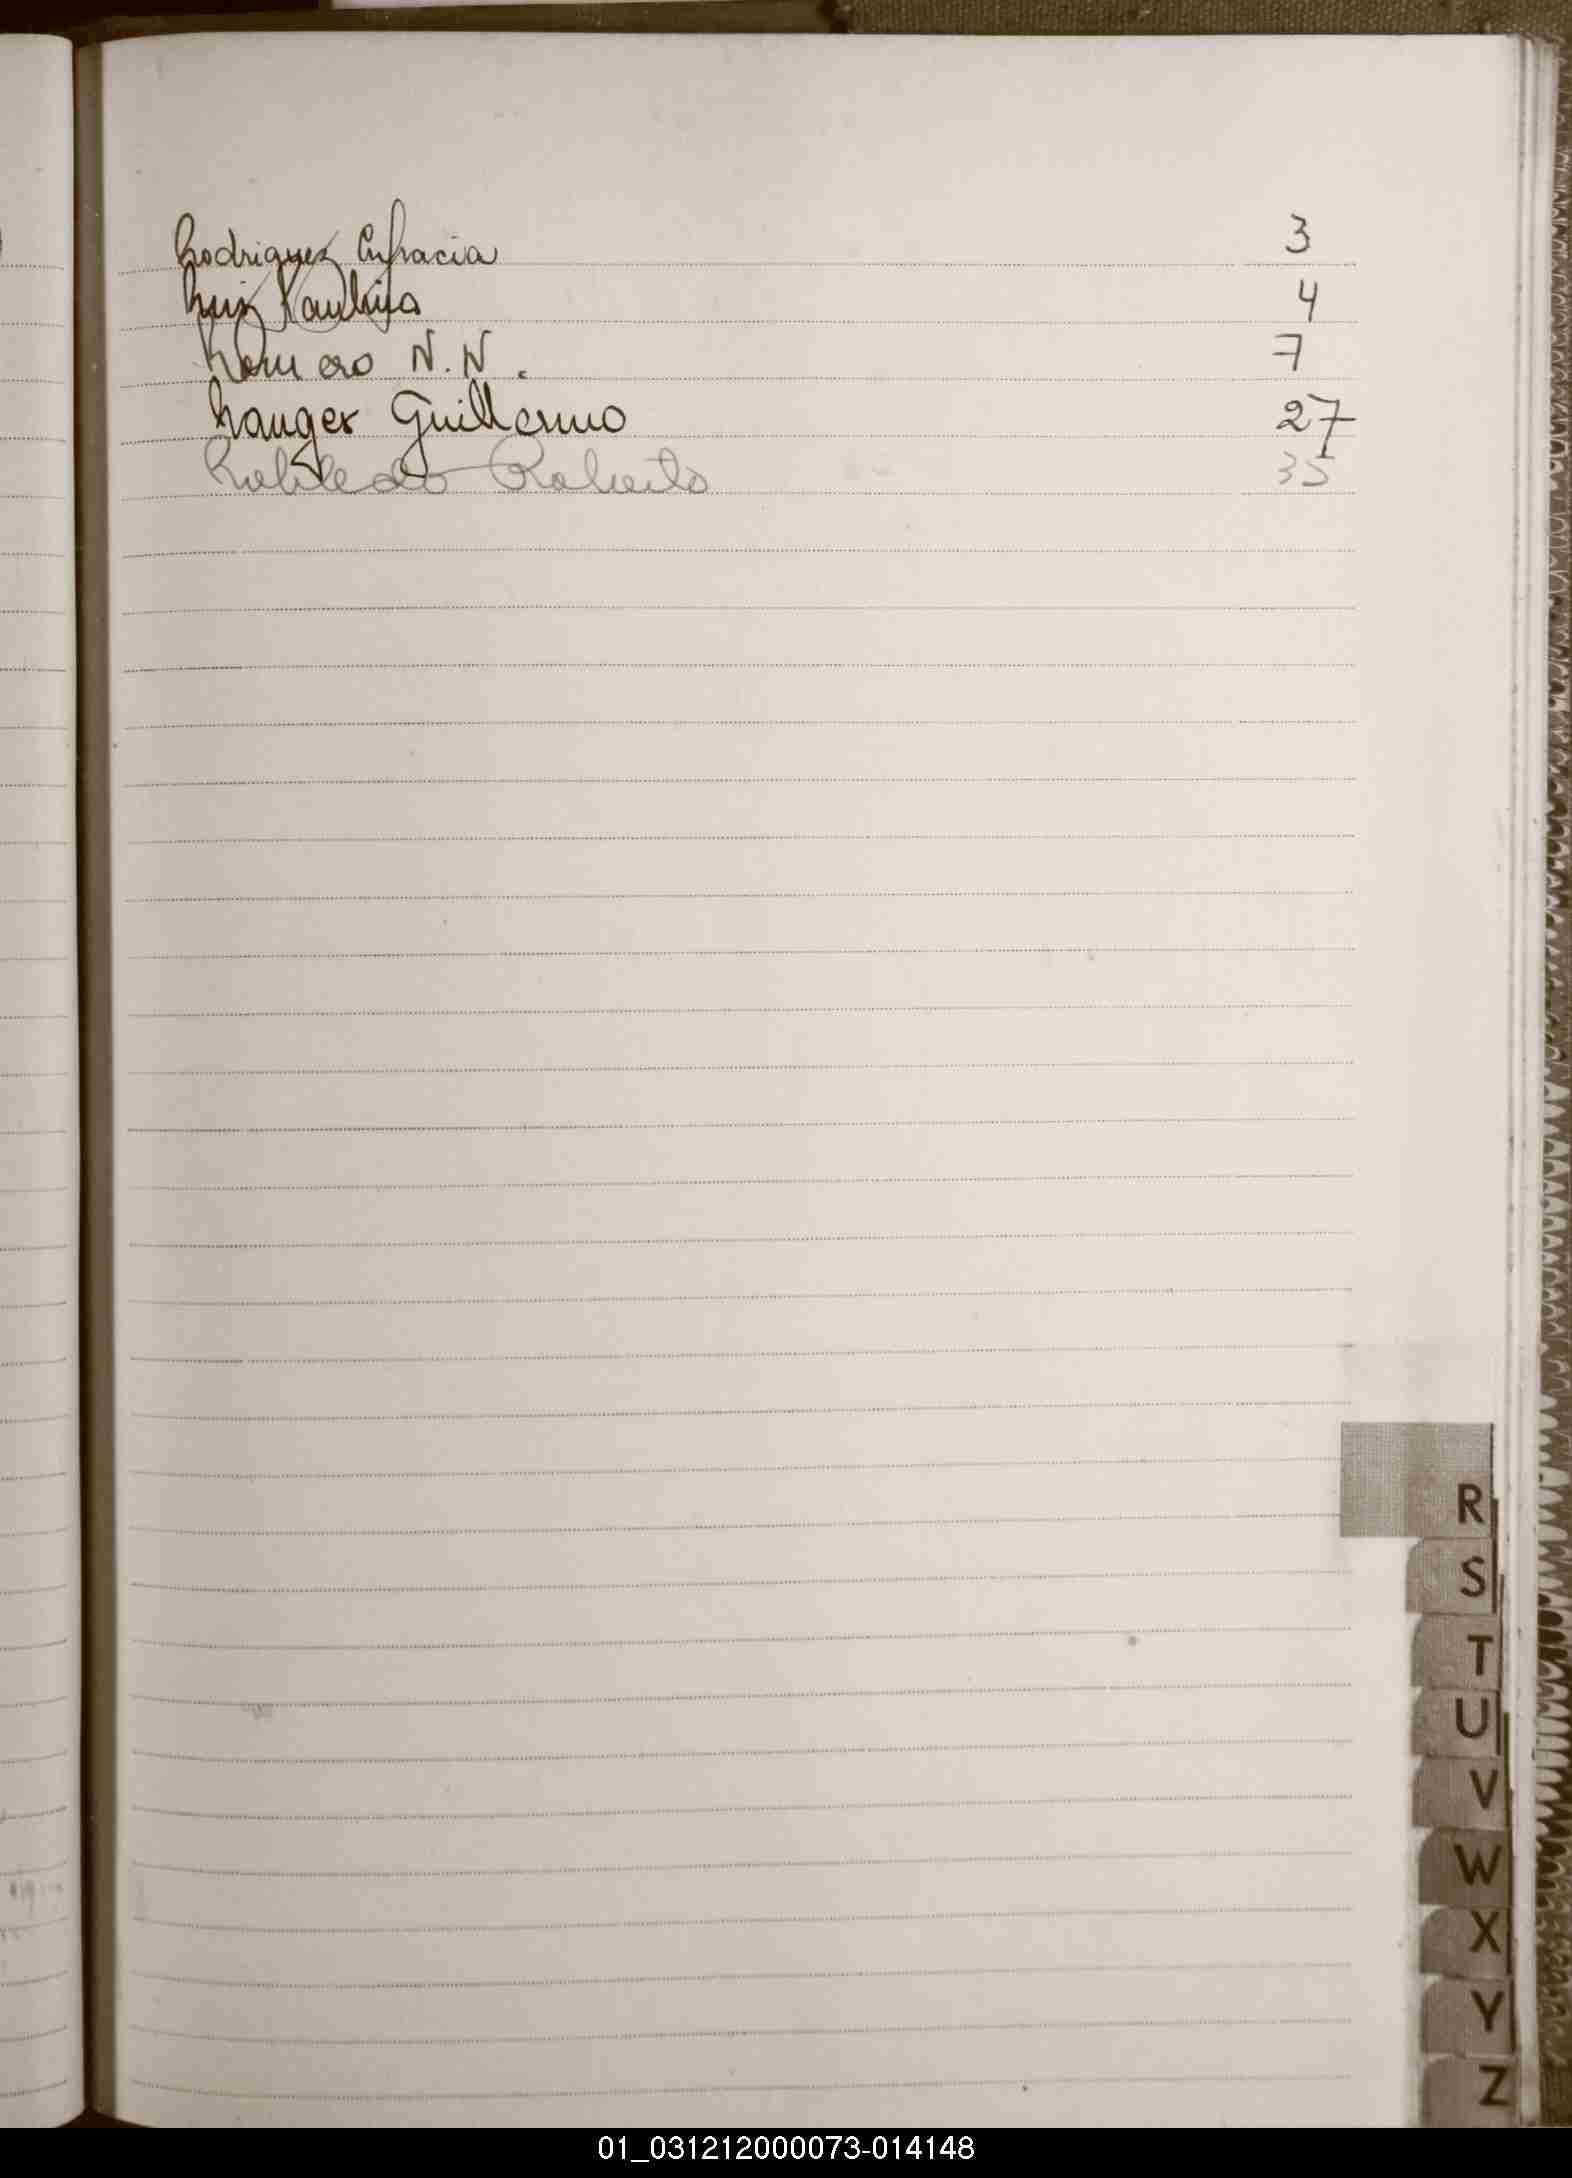 Rodriguez Eufracia 3
Ruiz 4
Romero N.N. 7
Ranger Guillermo 27
Robledo Roberto 35
R
S
T
U
V
W
X
Y
Z
01_031212000073-014148